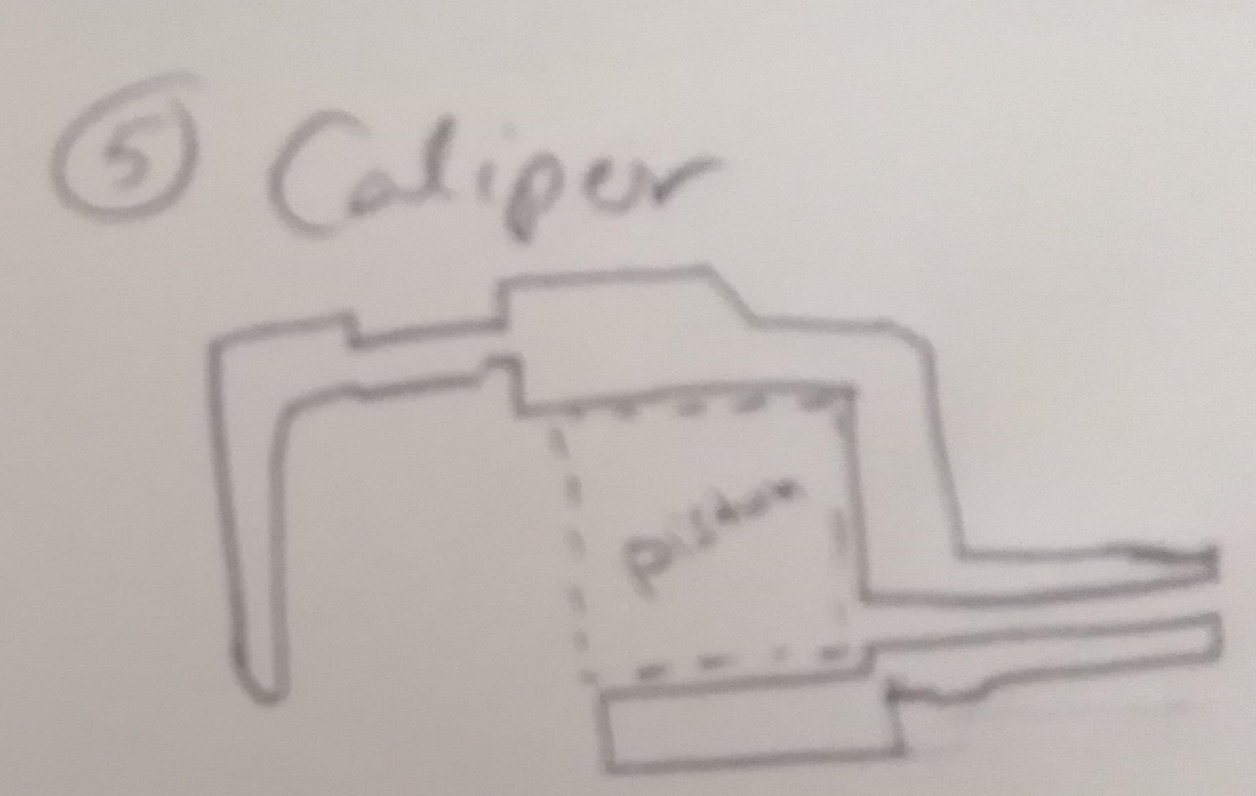 ⑤ Caliper
piston